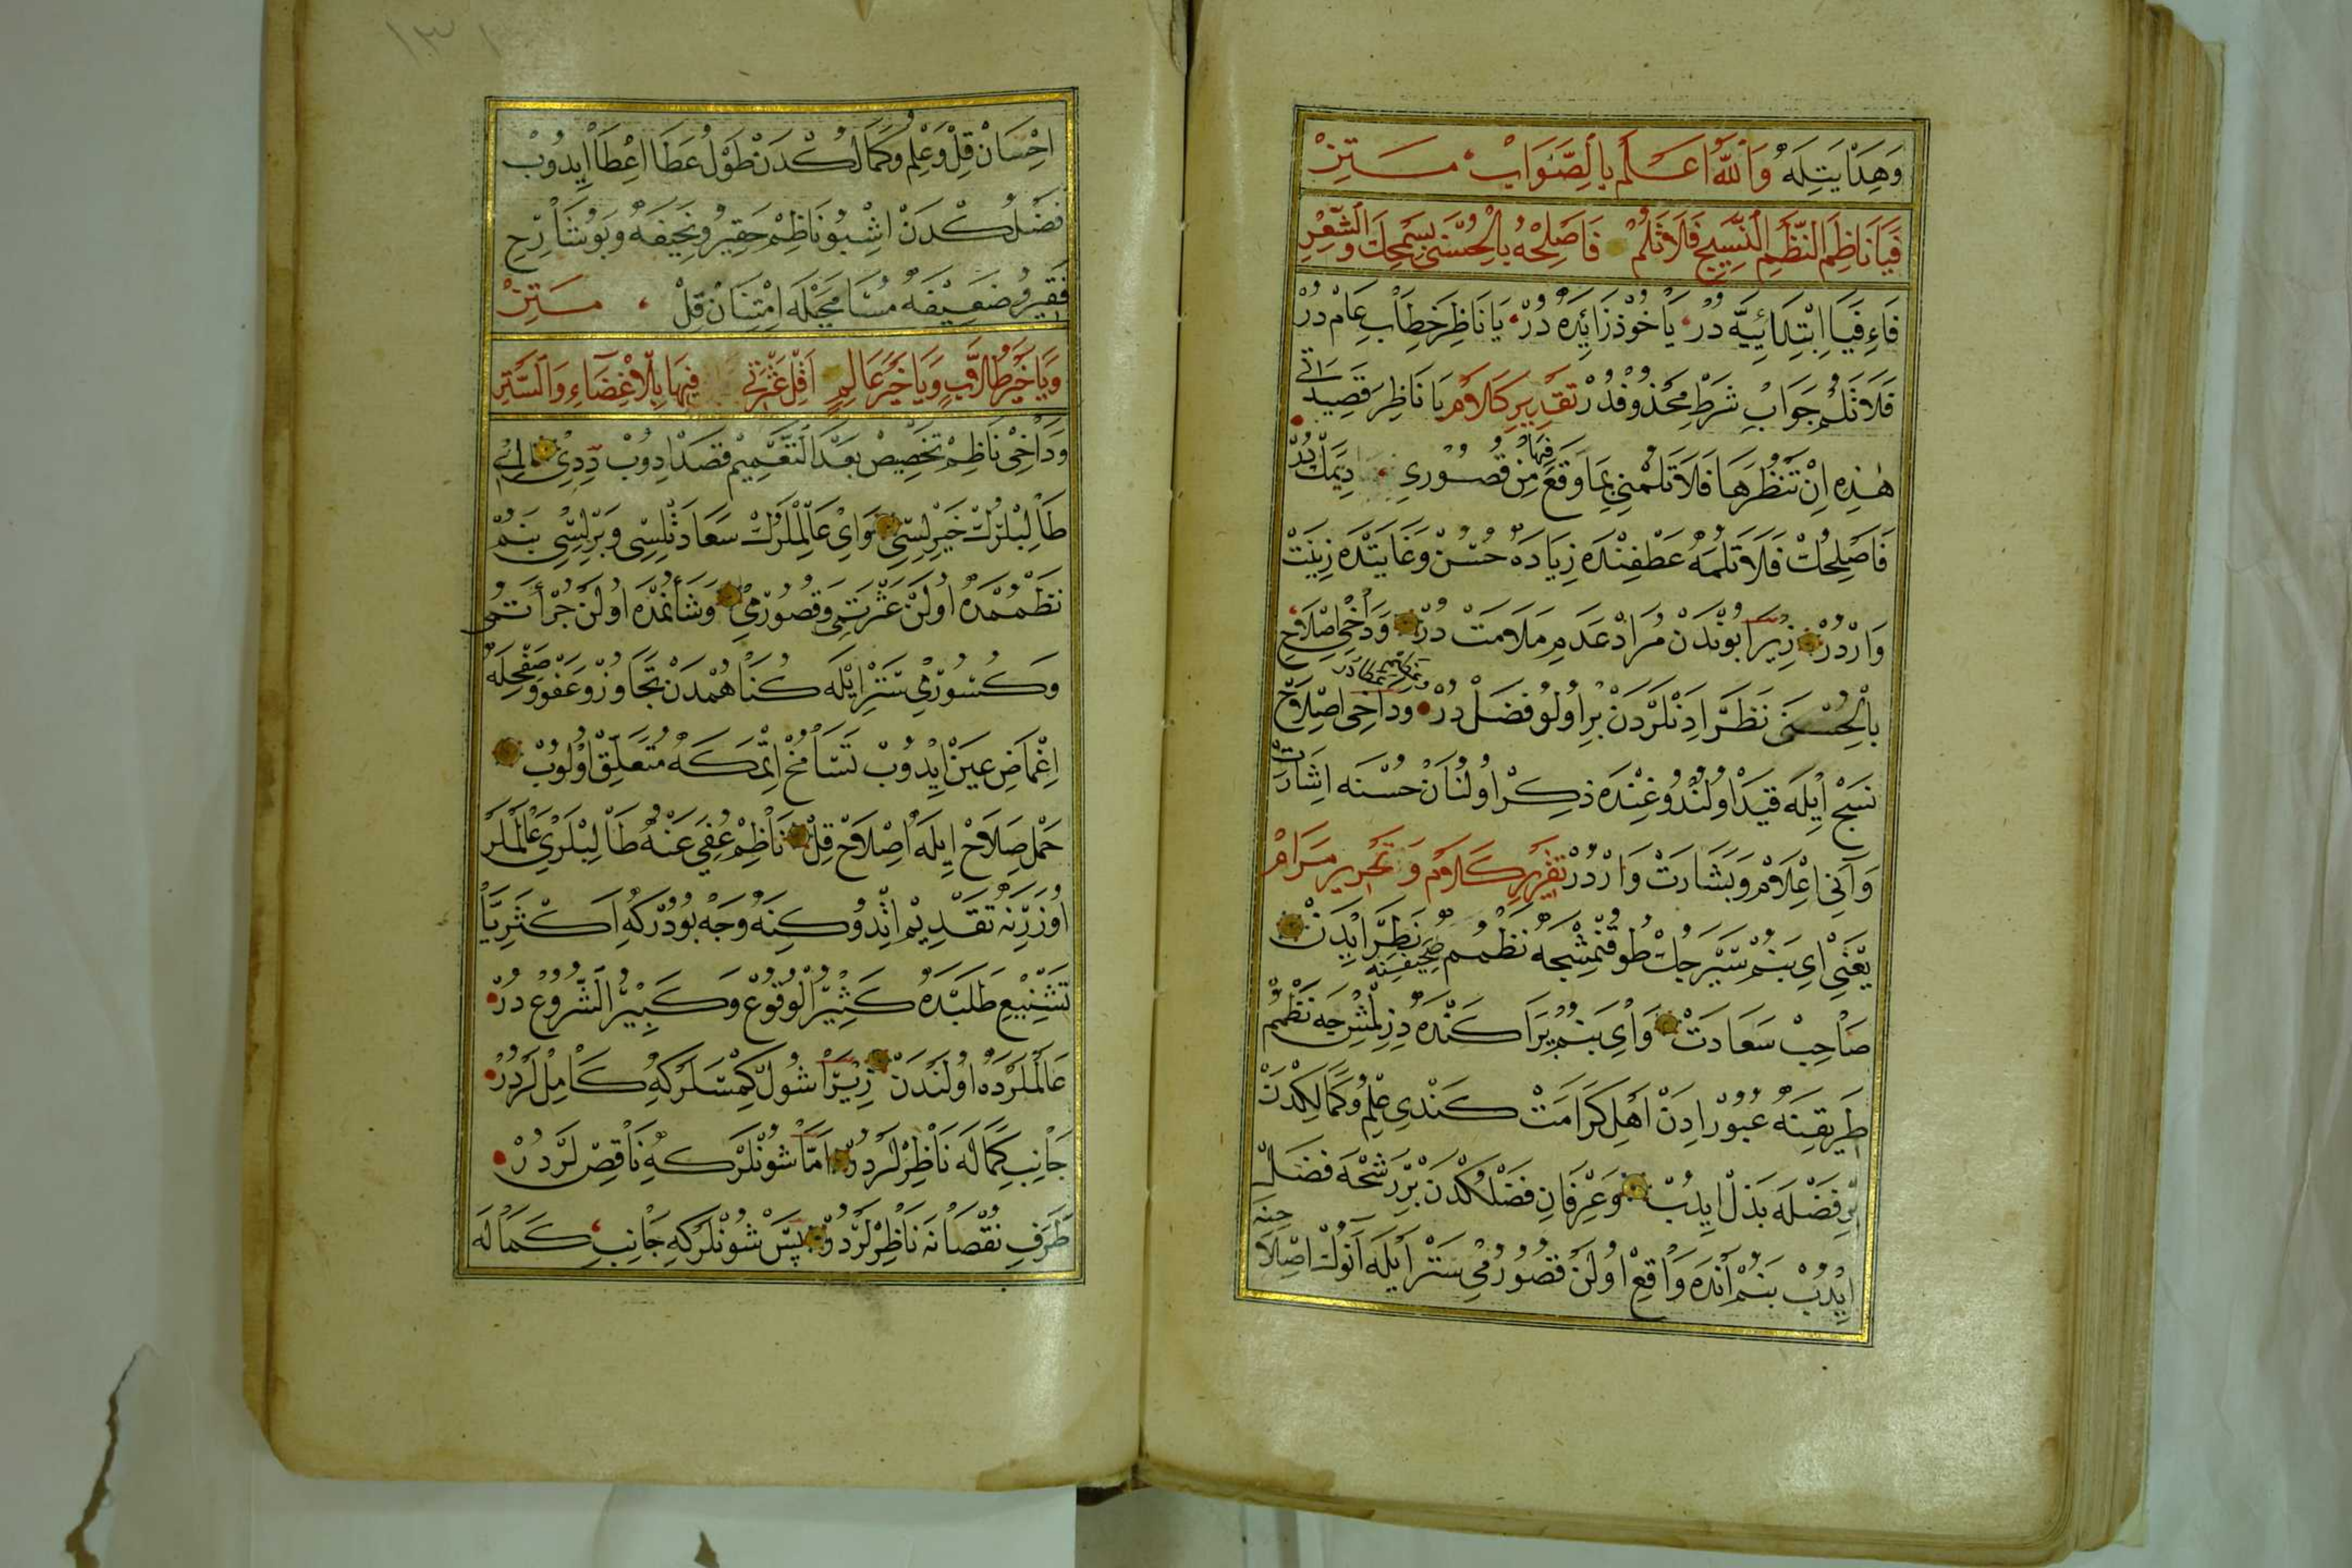 وَهِدَايَتِلَهْ وَاللّٰهُ اَعْلَمُ بِالصَّوَابْ مَتِنْ
فَيَا نَاظِمَ النَّظْمِ النَّسِيجِ فَلَا تَلُمْ فَاَصْلِحْهُ بِالْحُسْنٰى بِسَمْحِكَ وَالشِّعْرِ
فَاءِ فَيَا اِبْتِدَائِيَّه دُرْ يَاخُوذْ زَائِدَه دُرْ يَا نَاظِرْ خِطَابِ عَامْ دُرْ
فَلَا تَلُمْ جَوَابِ شَرْطِ مَحْذُوفْدُرْ تَقْدِيرِ كَلَامْ يَا نَاظِرَ قَصِيدَاتِى
هٰذِهِ اِنْ تَنْظُرْهَا فَلَا تَلُمْنِى بِمَا وَقَعَ فِيهَا مِنْ قُصُورِى دِيمَكْ دُرْ
فَاَصْلِحْكْ فَلَا تَلُمْهُ عَطْفِنْدَه زِيَادَه حُسْنْ وَغَايَتْدَه زِينَتْ
وَارْدُرْ زِيرَا بُونْدَنْ مُرَادْ عَدَمِ مَلَامَتْ دُرْ وَدَاخِى اِصْلَاحِ
بِالْحُسْنٰى نَظَرْ اِدَنْلَرْدَنْ بِرْ اُولُو فَضْلْ دُرْ وَدَاخِى اِصْلَاحْ
نَسْجْ اِيلَه قَيْدْ اُولُنْدُوغِنْدَه ذِكِرْ اُولُنَانْ حُسْنَه اِشَارَتْ
وَآنِى اِعْلَامْ وَبَشَارَتْ وَارْدُرْ تَقْرِيرِ كَلَامْ وَ تَحْرِيرِ مَرَامْ
يَعْنِى اَىْ بَنُمْ سَيْرَجُكْ طُوقُنْمِشْجَه نَظْمُمْ صَحِيفَسِنَه نَظَرْ اِيدَنْ
صَاحِبْ سَعَادَتْ وَاَىْ بَنُمْ يَرَاكَنْدَه دِزِلْمِشْجَه نَظْمُمْ
طَرِيقِنَه عُبُورْ اِدَنْ اَهْلِ كَرَامَتْ كَنْدِى عِلْمِ وُ كَمَالِكْدَنْ
بِرْ فَضْلَه بَذْلْ اِيدُبْ وَعِرْفَانِ فَضْلُكْدَنْ بِرْ رَشْحَه فَضَلْ
اِيدُبْ بَنُمْ اَنْدَه وَاقِعْ اُولَنْ قُصُورُمِى سَتْرْ اَيْلَه اَنُوكْ اِصْلَاحِنَه
اِحْسَانْ قِلْ وَعِلْمُ وَكَمَالُكْدَنْ طَوْلُ عَطَا اِعْطَا اِيدُوبْ
فَضْلُكْدَنْ اِشْبُو نَاظِمْ حَقِيرُ وَنَحِيفَه وَبُو شَارِحِ
فَقِيرُ وَضَعِيفَه مُسَامَحَيْلَه اِمْتِنَانْ قِلْ مَتِنْ
وَيَا خَيْرَ طُلَّابٍ وَيَا خَيْرَ عَالِمٍ اَقِلْ عَثْرَتِى فِيهَا بِالْاِغْضَاءِ وَالسَّتْرِ
وَدَاخِى نَاظِمْ تَخْصِيصْ بَعْدَ التَّعْمِيمْ قَصْدْ اِدُوبْ دِدِى اَىْ
طَالِبْلَرُكْ خَيْرلِسِى وَاَىْ عَالِمْلَرُكْ سَعَادَتْلِسِى وَيَرْلِسِى بَنُمْ
نَظْمُمْدَه اُولَنْ عَثْرَتِمِى وَقُصُورْمِى وَشَأْنُمْدَه اُولَنْ جُرْأَتُمِى
وَكُسُورْمِى سَتْرْ اِيْلَه كُنَاهُمْدَنْ تَجَاوُزْ وَعَفْوْ وَصَفْحِلَه
اِغْمَاضِ عَيْنْ اِيْدُوبْ تَسَامُحْ اِتْمَكَه مُتَعَلِّقْ اُولُوبْ
حَمْلِ صَلَاحْ اِيلَه اِصْلَاحْ قِلْ نَاظِمْ عُفِىَ عَنْهُ طَالِبْلَرِى عَالِمْلَرْ
اُوزَرِنَه تَقْدِيمْ اِتْدُوكِنَه وَجَه بُودُرْكَه اَكْثَرِيَّا
تَشْنِيعِ طَلَبَه دَه كَثِيرُ الْوُقُوعْ وَكَبِيرُ الشُّرُوعْ دُرْ
عَالِمْلَرْدَه اُولَنْدَنْ زِيرَا شُولْ كِمْسَلَرْكَه كَامِلْلَرْدُرْ
جَانِبِ كَمَالَه نَاظِرْلَرْدُرْ اَمَّا شُونْلَرْكَه نَاقِصْلَرْدُرْ
طَرَفِ نُقْصَانَه نَاظِرْلَرْدُرْ پَسْ شُونْلَرْكَه جَانِبِ كَمَالَه